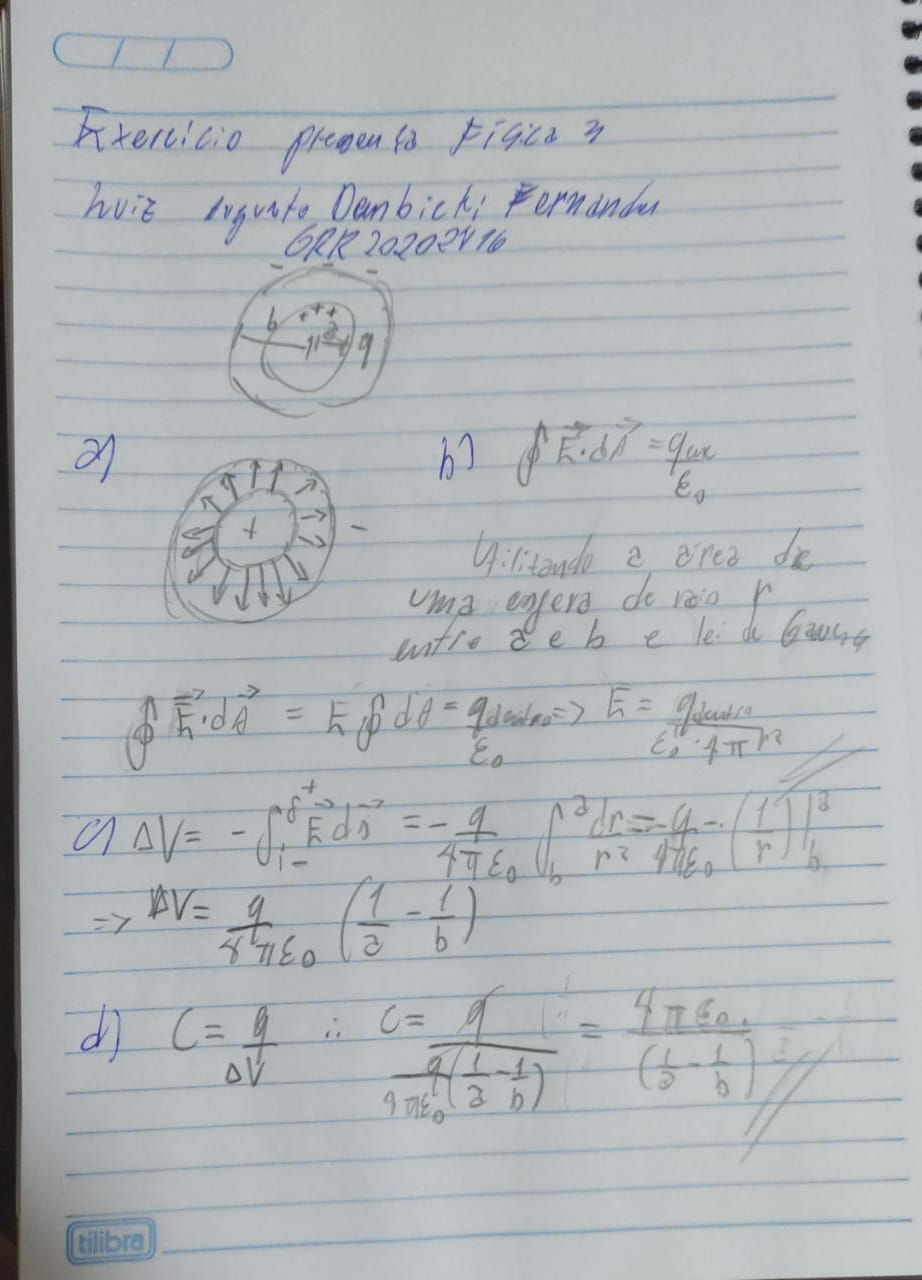 Exercício presença Física 3
Luiz Augusto Dambiski Fernandes
GRR 20202416
- - -
+ + +
b a q
a)
+ -
b) ∮ E⃗·dA⃗ = q_enc/ε₀
Utilizando a área de
uma esfera de raio r
entre a e b e lei de Gauss
∮ E⃗·dA⃗ = E ∮ dA = q_dentro/ε₀ => E = q_dentro/(ε₀·4πr²)
c) ΔV = -∫_{i-}^{f+} E⃗ ds⃗ = -q/(4πε₀) ∫_b^a dr/r² = -q/(4πε₀) -·(1/r)|_b^a
=> ΔV = q/(4πε₀) (1/a - 1/b)
d) C = q/ΔV ∴ C = q/(q/(4πε₀)(1/a - 1/b)) = 4πε₀·/(1/a - 1/b)
tilibra